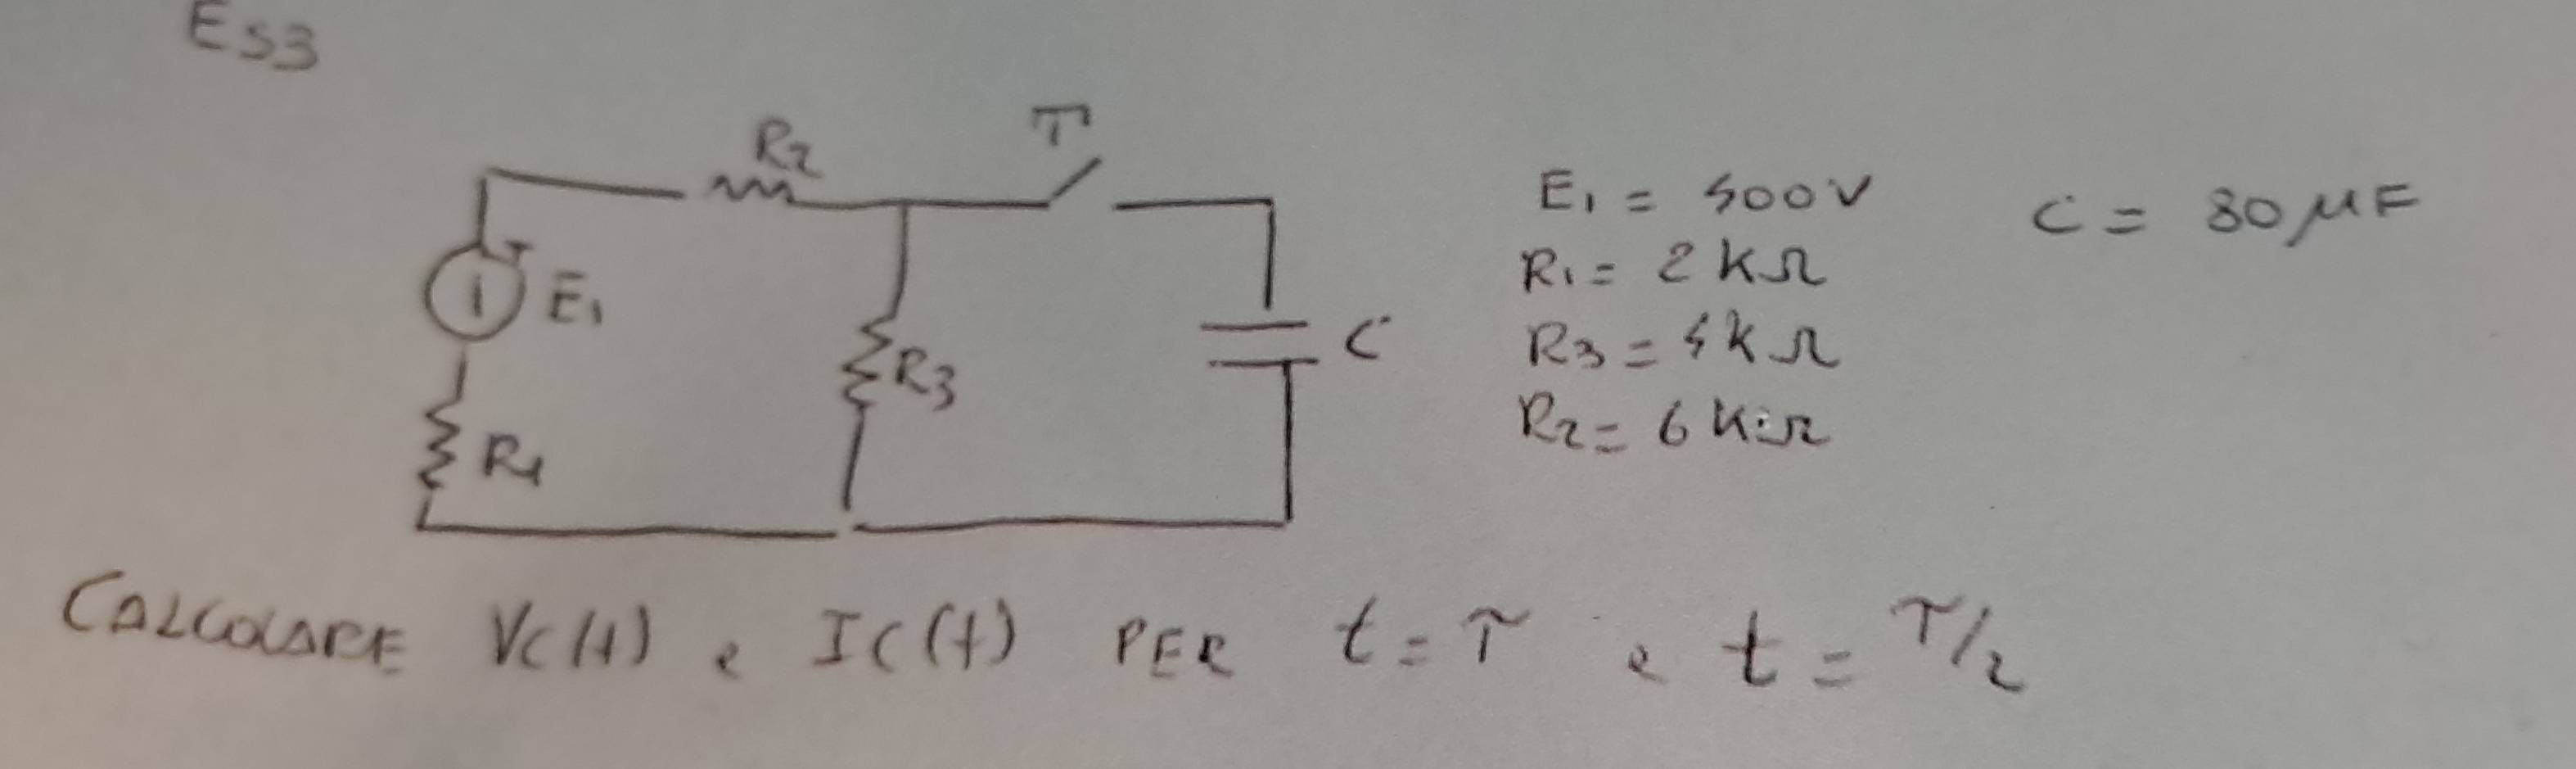 Es3
R2
T
E1
R3
C
R1
E1 = 400V
C = 80 μF
R1 = 2 kΩ
R3 = 4 kΩ
R2 = 6 kΩ
CALCOLARE Vc(t) e Ic(t) PER t = τ e t = τ/2